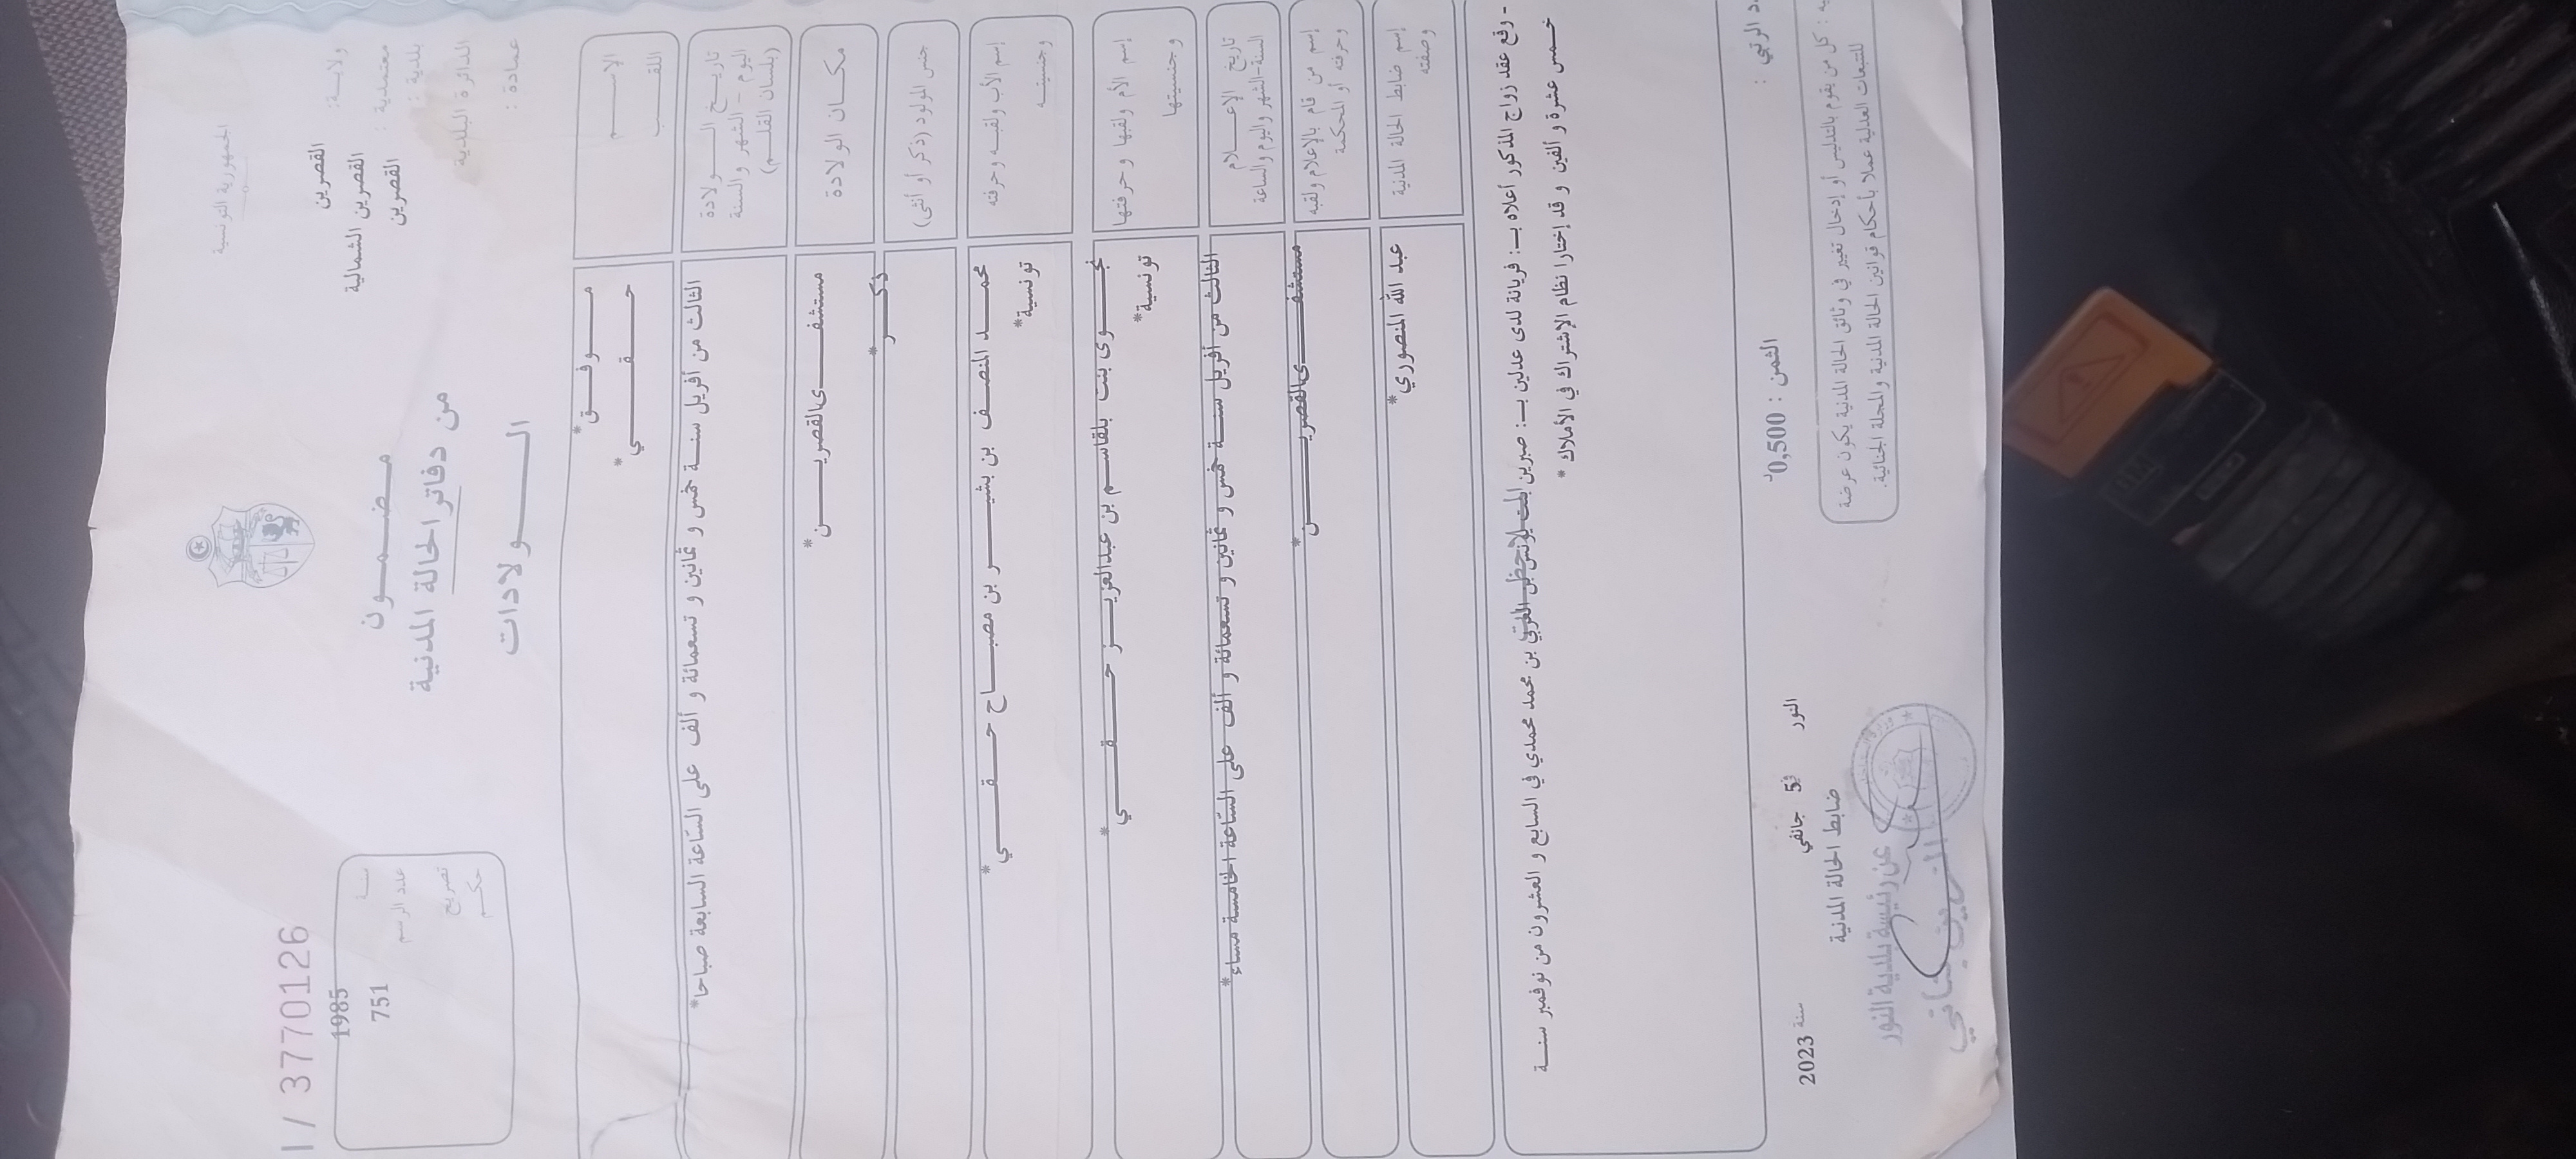 الجمهورية التونسية
ولايـــة: القصرين
معتمدية : القصرين الشمالية
بلدية : القصرين
الدائرة البلدية
عمادة :
مـضـمـــون
من دفاتر الحالة المدنية
الـــولادات
I / 3770126
سنـــة 1985
عدد الرسم 751
تصريح
حكـــم
الإســـــم مـــوفـــق*
اللقـــب حـــقـــي*
تاريـــخ الـــولادة
(اليوم - الشهر والسنة
(بلسان القلـــم)
الثالث من أفريل سنـــة خمس و ثمانين و تسعمائة و ألف على السّاعة السابعة صباحا*
مكـــان الولادة مستشفـــى القصريـــن*
جنس المولود (ذكر أو أنثى) ذكـــر*
إسم الأب ولقبـه وحرفته محمـــد المنصـــف بن بشيـــر بن مصبـــاح حـــقـــي*
وجنسيتـــه تونسية*
إسم الأم ولقبها وحرفتها نجـــوى بنت بلقاســـم بن عبدالعزيـــز حـــقـــي*
وجنسيتها تونسية*
تاريخ الإعـــلام
السنة-الشهر واليوم والساعة
الثالث من أفريل سنـــة خمس و ثمانين و تسعمائة و ألف على السّاعة الخامسة مساء*
إسم من قام بالإعلام ولقبه
وحرفته أو المحكمة
مستشفـــى القصريـــن*
إسم ضابط الحالة المدنية
وصفته
عبد الله المنصوري*
- وقع عقد زواج المذكور أعلاه بـ: فريانة لدى عدلين بـ: صبرين بن محمد محمدي في السابع و العشرون من نوفمبر سنـــة
خـــمس عشرة و ألفين و قد إختارا نظام الإشتراك في الأملاك *
الثمن : 0,500د
النور في 5 جانفي سنة 2023
ضابط الحالة المدنية
عن رئيسة بلدية النور
: كل من يقوم بالتدليس أو إدخال تغيير في وثائق الحالة المدنية يكون عرضة
للتتبعات العدلية عملا بأحكام قوانين الحالة المدنية والمجلة الجنائية.